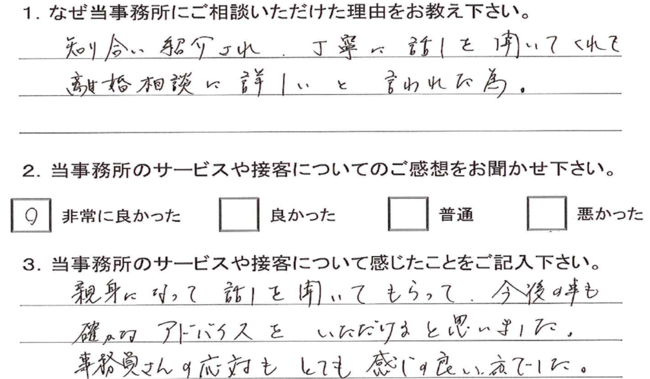 1. なぜ当事務所にご相談いただけた理由をお教え下さい。
知り合い紹介され、丁寧に話しを聞いてくれて
離婚相談に詳しいと言われた為。
2. 当事務所のサービスや接客についてのご感想をお聞かせ下さい。
○ 非常に良かった 良かった 普通 悪かった
3. 当事務所のサービスや接客について感じたことをご記入下さい。
親身になって話しを聞いてもらって、今後の事も
確かな アドバイスを いただけると思いました。
事務員さんの応対も とても 感じの良い方でした。